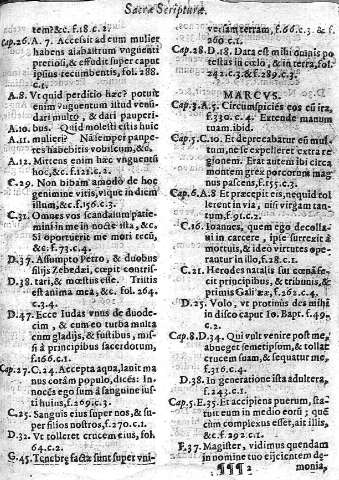 Sacræ Scripturæ.
tem? &c. f.18.c.2.
Cap.26.A.7. Accessit ad eum mulier
habens alabastrum vnguenti
pretiosi, & effudit super caput
ipsius recumbentis, fol. 288.
c.1.
A.8. Vt quid perditio hæc? potuit
enim vnguentum istud venun
dari multo, & dari pauperi-
A.10. bus. Quid molesti estis huic
A.11. mulieri? Nã semper paupe-
res habebitis vobiscum, &c.
A.12. Mittens enim hæc vnguentũ
hoc, &c. f.121.c.2.
C.29. Non bibam amodo de hoc
genimine vitis, vique in diem
illum, &c. f.156.c.3.
C.31. Omnes vos scandalum patie-
mini in me in nocte ista, &c.
Si oportuerit me mori tecũ,
&c. f.73.c.4.
D.37. Assumpto Petro, & duobus
filijs Zebedæi, cœpit contris-
D.38. tari, & mœstus esse. Tristis
est anima mea, &c. fol. 264.
c.3.4.
D.47. Ecce Iudas vnus de duode-
cim, & cum eo turba multa
cum gladijs, & fustibus, missi
à principibus sacerdotum,
f.166.c.1.
Cap.27.C.24. Accepta aqua, lauit ma
nus coràm populo, dicẽs: In-
nocẽs ego sum à sanguine ius
ti huius, f.269.c.3.
C.25. Sanguis eius super nos, & su-
per filios nostros, f.270.c.1.
D.32. Vt tolleret crucem eius, fol.
64.c.2.
G.45. Tenebrę factæ sunt super vni-
versam terram, f.66.c.3. & f.
260.c.1.
Cap.28.D.18. Data est mihi omnis po
testas in cœlo, & in terra, fol.
242.c.3. & f.289.c.3.
MARCVS.
Cap.3.A.5. Circumspiciẽs eos cũ ira,
f.330.c.4. Extende manum
tuam. ibid.
Cap.5.C.10. Et deprecabatur eũ mul-
tum, ne se expelleret extra re
gionem. Erat autem ibi circa
montem grex porcorum mag
nus pascens, f.155.c.3.
Cap.6.A.8. Et præcepit eis, ne quid tol
lerent in via, nisi virgam tan-
tum, f.91.c.2.
C.16. Ioannes, quem ego decolla-
ui in carcere, ipse surrexit à
mortuis, & ideo virtutes ope-
rantur in illo, f.28.c.1.
C.21. Herodes natalis sui cœnã fe-
cit principibus, & tribunis, &
primis Galilææ, f.262.c.4.
D.25. Volo, vt protinus des mihi
in disco caput Io. Bapt. f.49.
c.2.
Cap.8.D.34. Qui vult venire post me,
abneget semetipsum, & tollat
crucem suam, & sequatur me,
f.316.c.3.
D.38. In generatione ista adultera,
f.243.c.1.
Cap.9.E.35. Et accipiens puerum, sta-
tuit eum in medio eorũ; quẽ
cùm complexus esset, ait illis,
&c. f.292.c.1.
F.37. Magister, vidimus quendam
in nomine tuo eijcientem de-
¶¶¶ 2 monia,